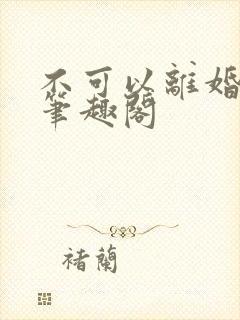 不可以離婚
筆趣閣
褚蘭